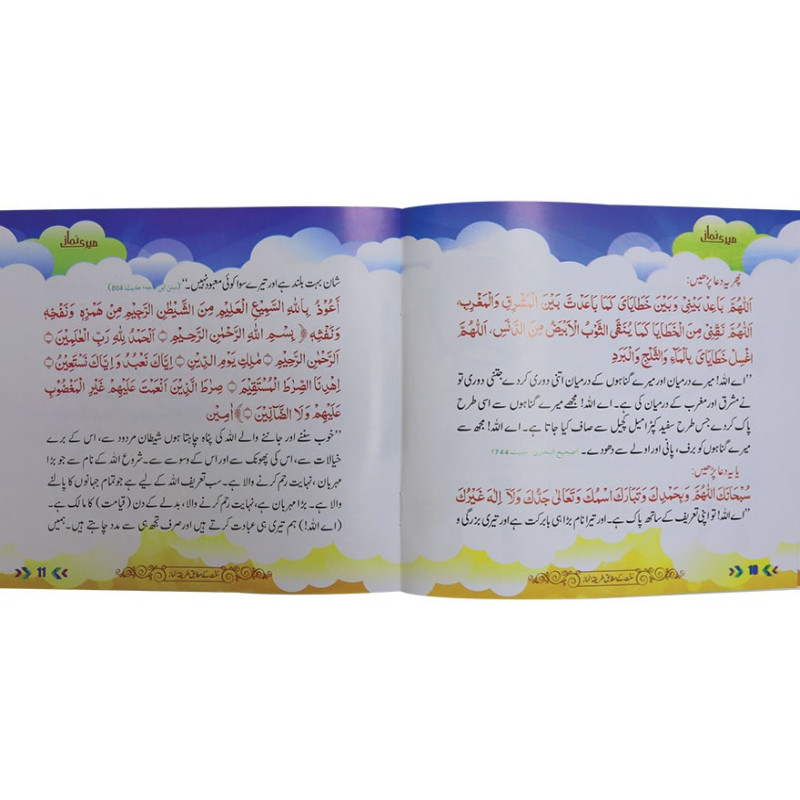 میری نماز
پھر یہ دعا پڑھیں:
اَللّٰهُمَّ بَاعِدْ بَيْنِيْ وَبَيْنَ خَطَايَايَ كَمَا بَاعَدْتَّ بَيْنَ الْمَشْرِقِ وَالْمَغْرِبِ
اَللّٰهُمَّ نَقِّنِيْ مِنَ الْخَطَايَا كَمَا يُنَقَّى الثَّوْبُ الْاَبْيَضُ مِنَ الدَّنَسِ، اَللّٰهُمَّ
اغْسِلْ خَطَايَايَ بِالْمَاءِ وَالثَّلْجِ وَالْبَرَدِ
’’اے اللہ! میرے درمیان اور میرے گناہوں کے درمیان اتنی دوری کر دے جتنی دوری تو
نے مشرق اور مغرب کے درمیان کی ہے۔ اے اللہ! مجھے میرے گناہوں سے اسی طرح
پاک کر دے جس طرح سفید کپڑا میل کچیل سے صاف کیا جاتا ہے۔ اے اللہ! مجھ سے
میرے گناہوں کو برف، پانی اور اولے سے دھو دے۔ (صحیح البخاری، حدیث: 744)
یا یہ دعا پڑھیں:
سُبْحَانَكَ اللّٰهُمَّ وَبِحَمْدِكَ وَتَبَارَكَ اسْمُكَ وَتَعَالٰى جَدُّكَ وَلَا اِلٰهَ غَيْرُكَ
’’اے اللہ! تو اپنی تعریف کے ساتھ پاک ہے۔ اور تیرا نام بڑا ہی بابرکت ہے اور تیری بزرگی و
سنت کے مطابق طریقہ نماز
10
میری نماز
شان بہت بلند ہے اور تیرے سوا کوئی معبود نہیں۔‘‘ (سنن ابن ماجہ، حدیث: 804)
اَعُوْذُ بِاللّٰهِ السَّمِيْعِ الْعَلِيْمِ مِنَ الشَّيْطٰنِ الرَّجِيْمِ مِنْ هَمْزِهٖ وَنَفْخِهٖ
وَنَفْثِهٖ ﴿ بِسْمِ اللّٰهِ الرَّحْمٰنِ الرَّحِيْمِ ۝ اَلْحَمْدُ لِلّٰهِ رَبِّ الْعٰلَمِيْنَ ۝
الرَّحْمٰنِ الرَّحِيْمِ ۝ مٰلِكِ يَوْمِ الدِّيْنِ ۝ اِيَّاكَ نَعْبُدُ وَاِيَّاكَ نَسْتَعِيْنُ ۝
اِهْدِنَا الصِّرَاطَ الْمُسْتَقِيْمَ ۝ صِرَاطَ الَّذِيْنَ اَنْعَمْتَ عَلَيْهِمْ غَيْرِ الْمَغْضُوْبِ
عَلَيْهِمْ وَلَا الضَّآلِّيْنَ ۝﴾ اٰمِيْن
’’خوب سننے اور جاننے والے اللہ کی پناہ چاہتا ہوں شیطان مردود سے، اس کے برے
خیالات سے، اس کی پھونک سے اور اس کے وسوسے سے۔ شروع اللہ کے نام سے جو بڑا
مہربان، نہایت رحم کرنے والا ہے۔ سب تعریف اللہ کے لیے ہے جو تمام جہانوں کا پالنے
والا ہے۔ بڑا مہربان ہے، نہایت رحم کرنے والا، بدلے کے دن (قیامت) کا مالک ہے۔
(اے اللہ!) ہم تیری ہی عبادت کرتے ہیں اور صرف تجھ ہی سے مدد چاہتے ہیں۔ ہمیں
سنت کے مطابق طریقہ نماز
11